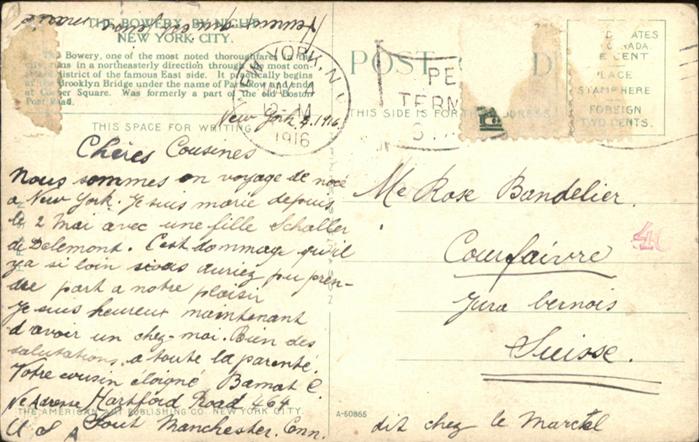 THE BOWERY, BY NIGHT,
NEW YORK CITY.
The Bowery, one of the most noted thoroughfares of the
city runs in a northeasterly direction through the most con-
gested district of the famous East side. It practically begins
at the Brooklyn Bridge under the name of Park Row and ends
at Cooper Square. Was formerly a part of the old Boston
Post Road.
THIS SPACE FOR WRITING
NEW YORK, N.Y.
1916
POST
THIS SIDE FOR THE ADDRESS
PLACE
STAMP HERE
FOREIGN
TWO CENTS.
New York 4. 1916
Chères Cousines
Nous sommes en voyage de noce
a New York. Je suis marié depuis
le 2 Mai avec une fille Schaller
de Delemont. C'est dommage qu'il
y a si loin vous auriez pu pren-
dre part a notre plaisir
Je suis heureux maintenant
d'avoir un chez-moi. Bien des
salutations a toute la parenté.
Votre cousin éloigné Bamat C.
Hartford Road 464
South Manchester, Conn.
U S A
Mle Rose Bandelier.
Courfaivre
Jura bernois
Suisse.
dit chez le Martel
THE AMERICAN ART PUBLISHING CO. NEW YORK CITY.
A-60865